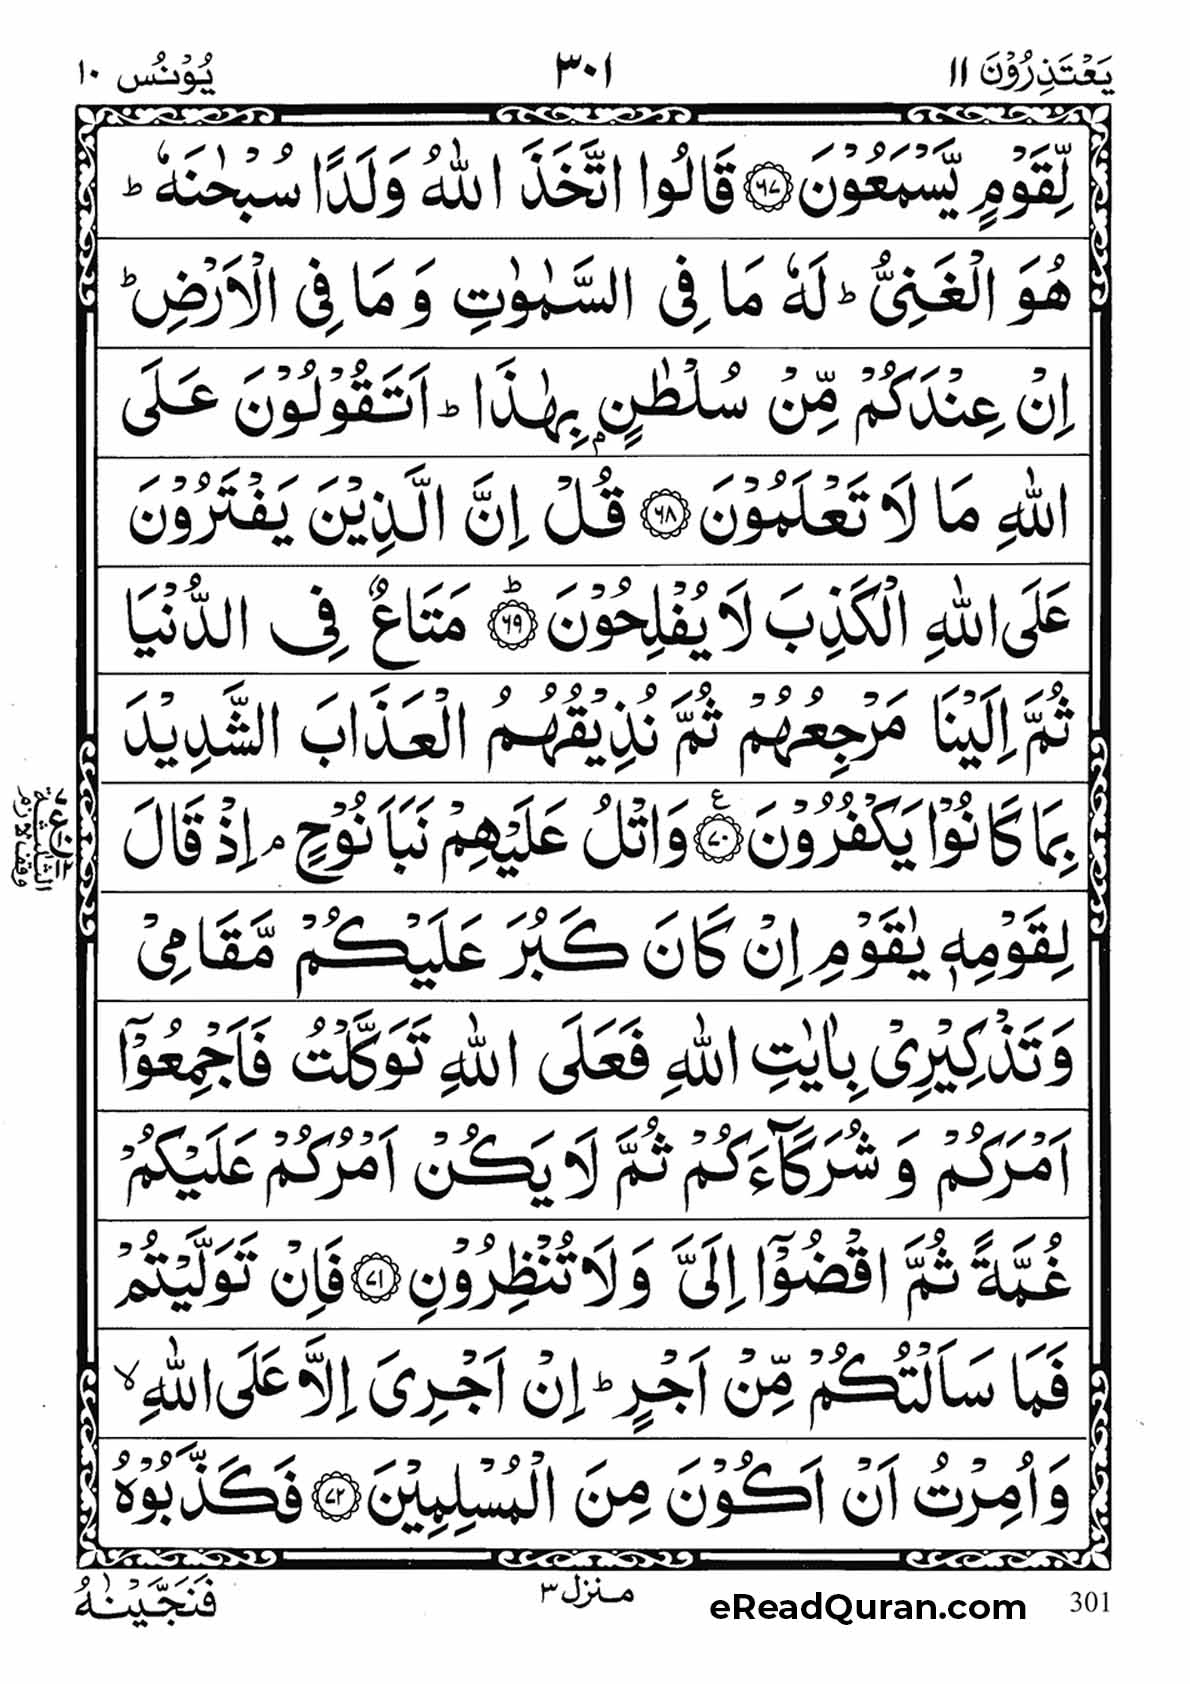 يَعْتَذِرُوْنَ ۱۱ ۳۰۱ يُوْنُس ۱۰
لِّقَوْمٍ يَّسْمَعُوْنَ ۶۷ قَالُوا اتَّخَذَ اللّٰهُ وَلَدًا سُبْحٰنَهٗ ؕ
هُوَ الْغَنِىُّ ؕ لَهٗ مَا فِى السَّمٰوٰتِ وَ مَا فِى الْاَرْضِ ؕ
اِنْ عِنْدَكُمْ مِّنْ سُلْطٰنٍۭ بِهٰذَا ؕ اَتَقُوْلُوْنَ عَلَى
اللّٰهِ مَا لَا تَعْلَمُوْنَ ۶۸ قُلْ اِنَّ الَّذِيْنَ يَفْتَرُوْنَ
عَلَى اللّٰهِ الْكَذِبَ لَا يُفْلِحُوْنَ ؕ ۶۹ مَتَاعٌ فِى الدُّنْيَا
ثُمَّ اِلَيْنَا مَرْجِعُهُمْ ثُمَّ نُذِيْقُهُمُ الْعَذَابَ الشَّدِيْدَ
بِمَا كَانُوْا يَكْفُرُوْنَ ع ۷۰ وَاتْلُ عَلَيْهِمْ نَبَاَ نُوْحٍ ۘ اِذْ قَالَ
لِقَوْمِهٖ يٰقَوْمِ اِنْ كَانَ كَبُرَ عَلَيْكُمْ مَّقَامِىْ
وَتَذْكِيْرِىْ بِاٰيٰتِ اللّٰهِ فَعَلَى اللّٰهِ تَوَكَّلْتُ فَاَجْمِعُوْۤا
اَمْرَكُمْ وَ شُرَكَآءَكُمْ ثُمَّ لَا يَكُنْ اَمْرُكُمْ عَلَيْكُمْ
غُمَّةً ثُمَّ اقْضُوْۤا اِلَىَّ وَلَا تُنْظِرُوْنِ ۷۱ فَاِنْ تَوَلَّيْتُمْ
فَمَا سَاَلْتُكُمْ مِّنْ اَجْرٍ ؕ اِنْ اَجْرِىَ اِلَّا عَلَى اللّٰهِ ۙ
وَاُمِرْتُ اَنْ اَكُوْنَ مِنَ الْمُسْلِمِيْنَ ۷۲ فَكَذَّبُوْهُ
فَنَجَّيْنٰهُ
منزل ۳
eReadQuran.com 301